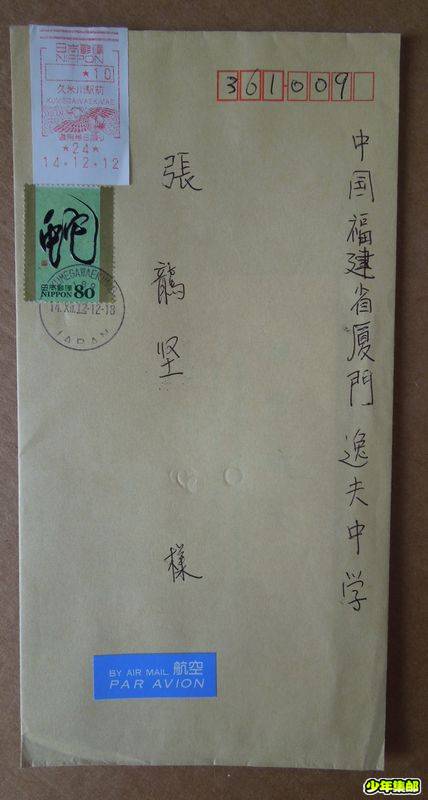 日本郵便
NIPPON
★10
久米川駅前
KUMEGAWAEKIMAE
★24★
14.12.12
蛇
日本郵便
NIPPON 80
KUMEGAWAEKIMAE
14.XII.12.12-18
JAPAN
361009
中国福建省厦門逸夫中学
張
坚
様
BY AIR MAIL 航空
PAR AVION
少年集邮